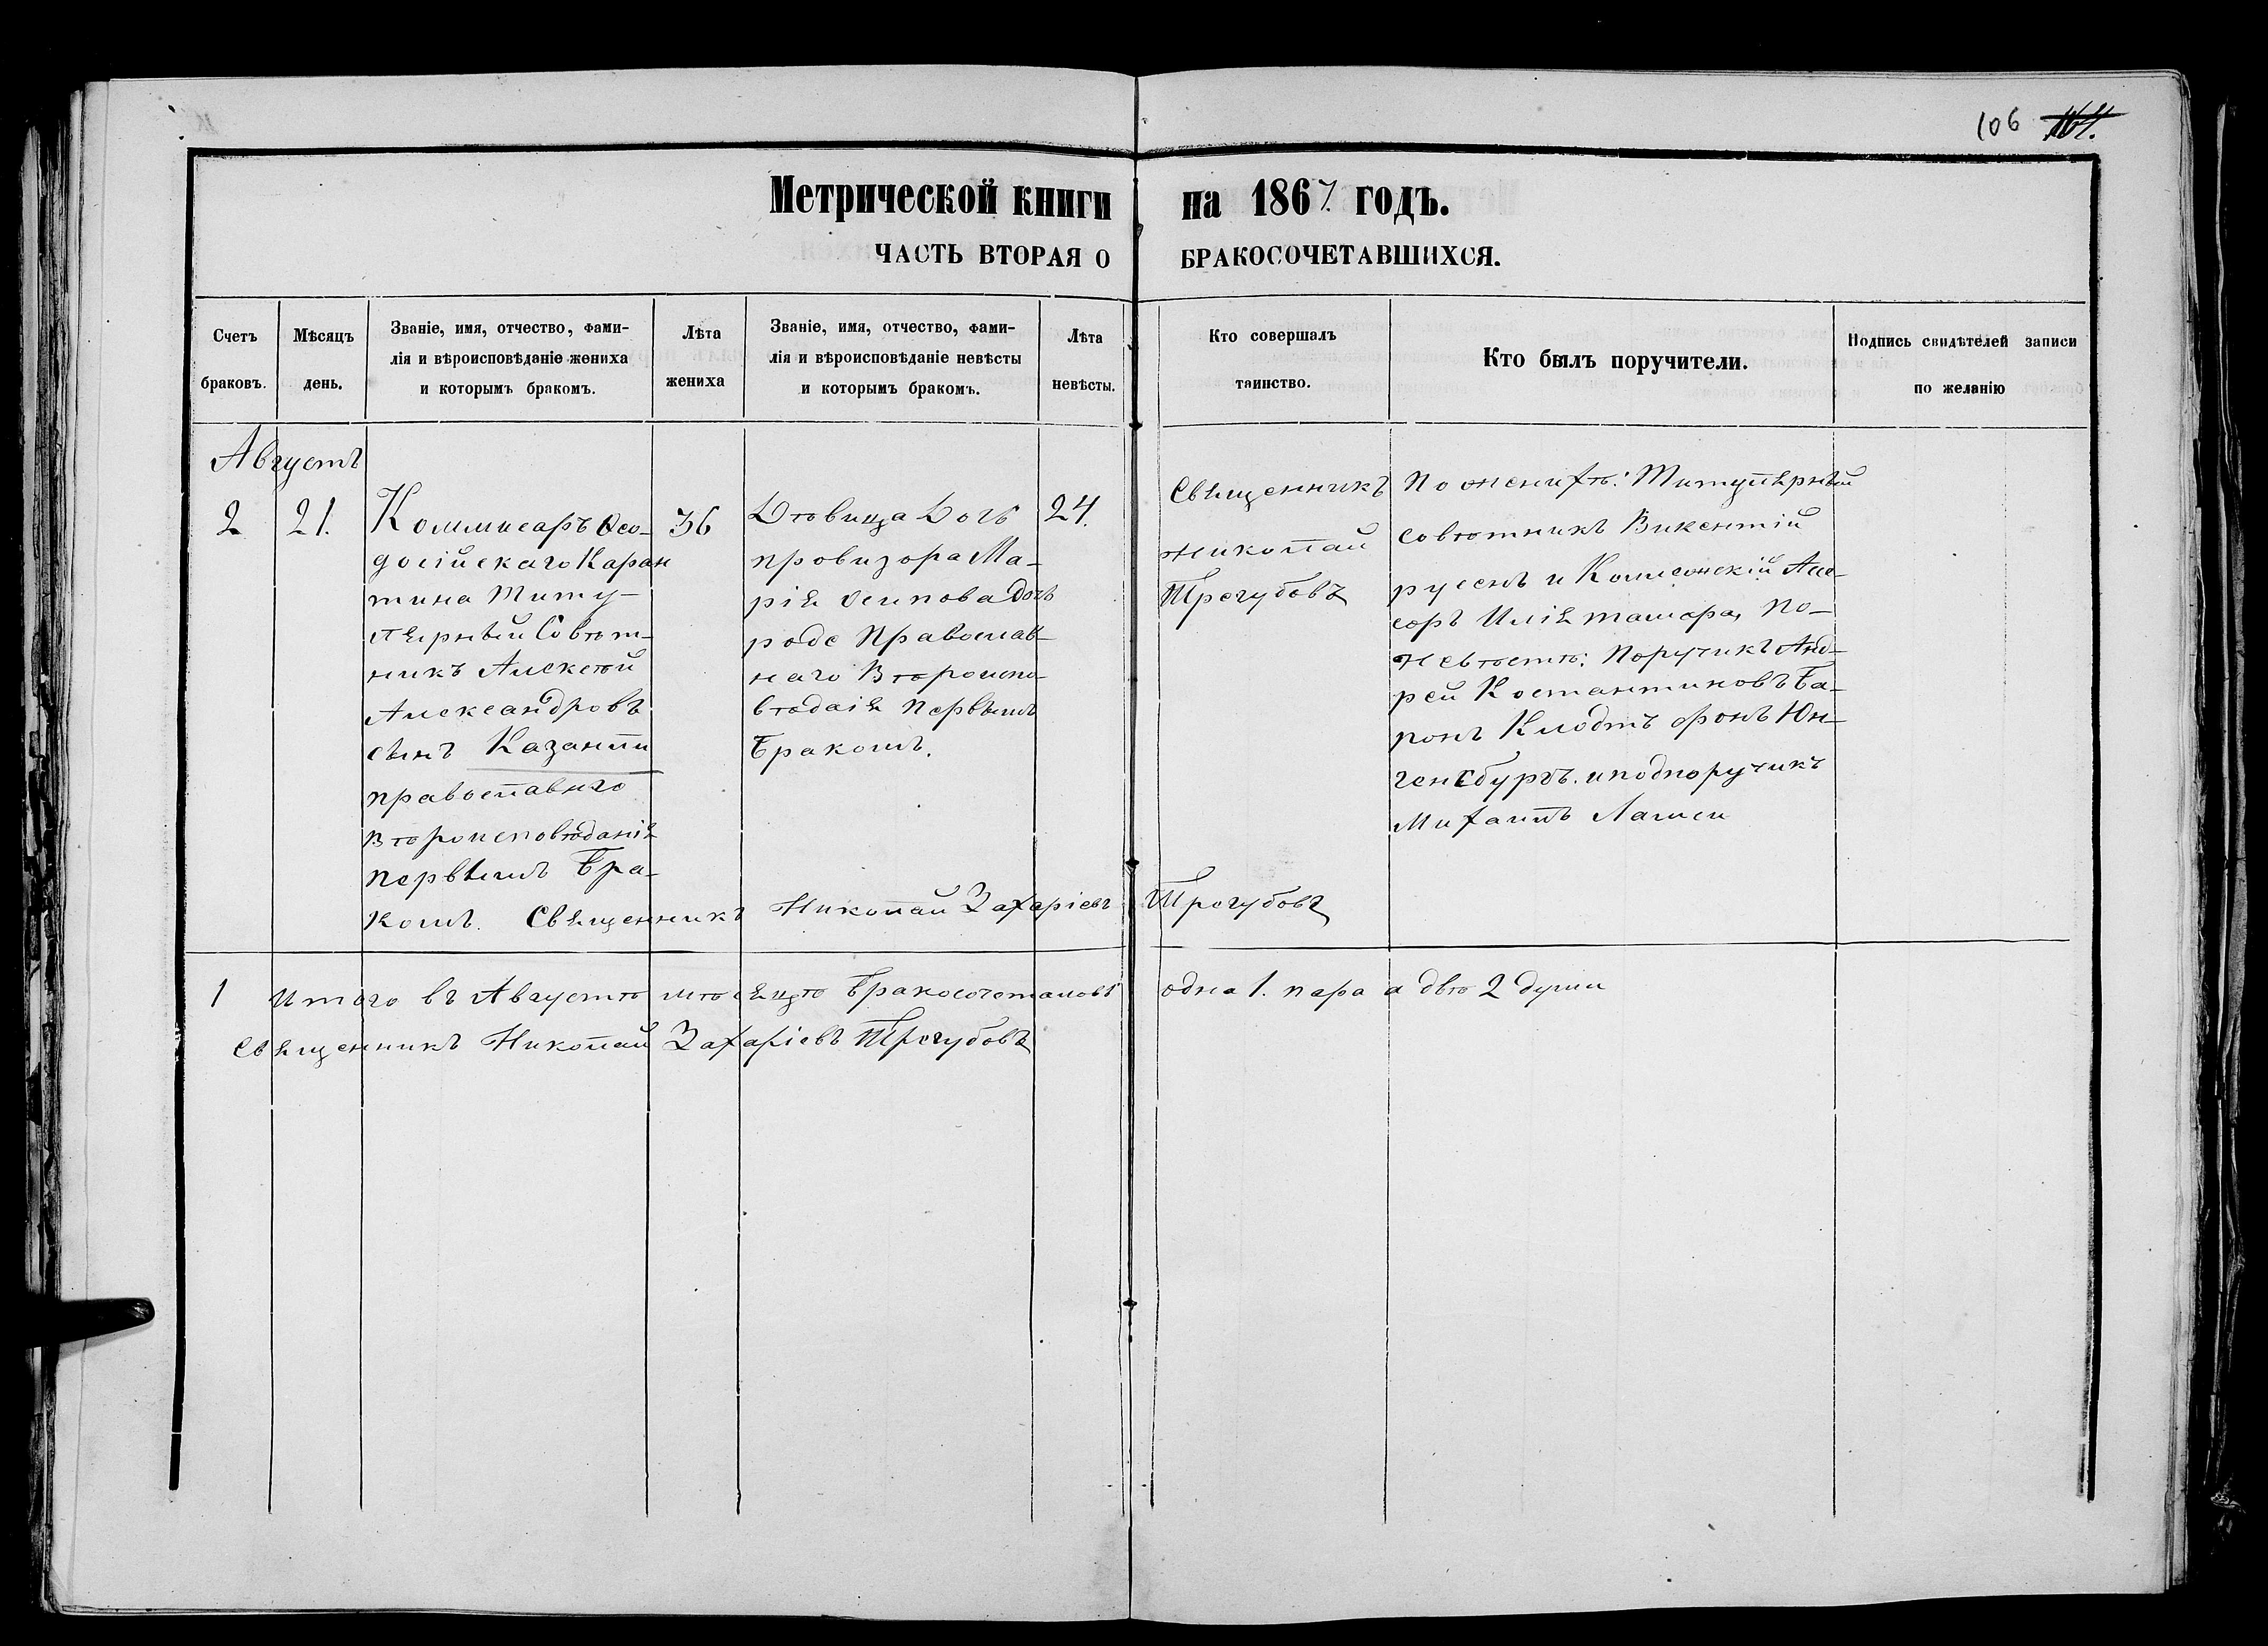 106 164.
Метрической книги на 1867 годъ.
ЧАСТЬ ВТОРАЯ О БРАКОСОЧЕТАВШИХСЯ.
Счетъ браковъ.
Мѣсяцъ день.
Званіе, имя, отчество, фами-
лія и вѣроисповѣданіе жениха
и которымъ бракомъ.
Лѣта жениха
Званіе, имя, отчество, фами-
лія и вѣроисповѣданіе невѣсты
и которымъ бракомъ.
Лѣта невѣсты.
Кто совершалъ
таинство.
Кто былъ поручители.
Подпись свидѣтелей записи
по желанію
Августъ
2
21.
Коммисаръ Ѳео-
досійскаго Каран
тина Титу-
лярный Совѣт-
никъ Алексѣй
Александровъ
сынъ Казанли
православнаго
Вѣроисповѣданія
первымъ Бра-
комъ.
36
Дѣвица Дочь
провизора Ма-
рія Осипова дочь
роде Православ-
наго Вѣроиспо-
вѣдаія первымъ
Бракомъ.
24.
Священникъ
Николай
Трегубовъ
По женихѣ: Титулярный
совѣтникъ Викентій
руссенъ и Колисежскій Асе-
соръ Илія ташера, по-
невѣстѣ: Поручикъ Анд-
рей Костантиновъ Ба-
ронъ Клодтъ фонъ Юн-
генсбургъ. и подпоручикъ
Михаилъ Лашеи
Священникъ Николай Захаріевъ Трегубовъ
1 Итого въ Августѣ мѣсяцѣ бракосочеталовь одна 1. пара а двѣ 2 души
Священникъ Николай Захаріевъ Трегубовъ